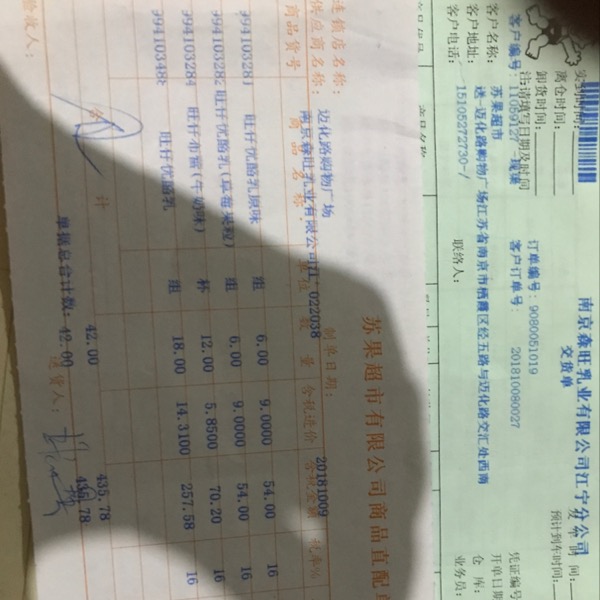 南京森旺乳业有限公司江宁分公司
交货单
预计到车时间:
离仓时间:
卸货时间:
注请填写日期及时间
订单编号: 9080051019
客户订单号: 201810080027
客户名称: 苏果超市
客户地址: 送-迈化路购物广场江苏省南京市栖霞区经五路与迈化路交汇处西南
客户电话: 15105272730-/
联络人:
凭证编号
开单日期
仓 库:
业务员:
苏果超市有限公司商品直配
连锁店名称: 迈化路购物广场
制单日期: 20181009
供应商名称: 南京森旺乳业有限公司江 022038
商品货号 商品名称 单位 数量 含税进价 含税金额 税率%
旺仔优酪乳原味 组 6.00 9.0000 54.00 16
旺仔优酪乳(草莓果粒) 组 6.00 9.0000 54.00 16
旺仔 (牛奶味) 杯 12.00 5.8500 70.20 16
旺仔优酪乳 组 18.00 14.3100 257.58 16
合 计 42.00 435.78
单据总合计数: 42.00 435.78
验收人: 送货人: